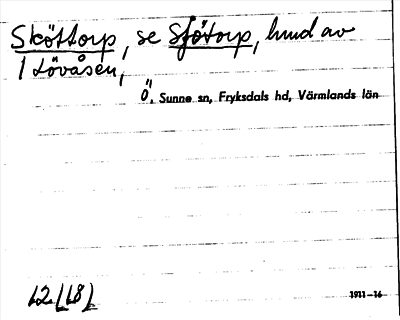 Sköttorp, se Sjötorp, hmd av
1 Lövåsen,
Ö, Sunne sn, Fryksdals hd, Värmlands län
12 [18]
1911–16